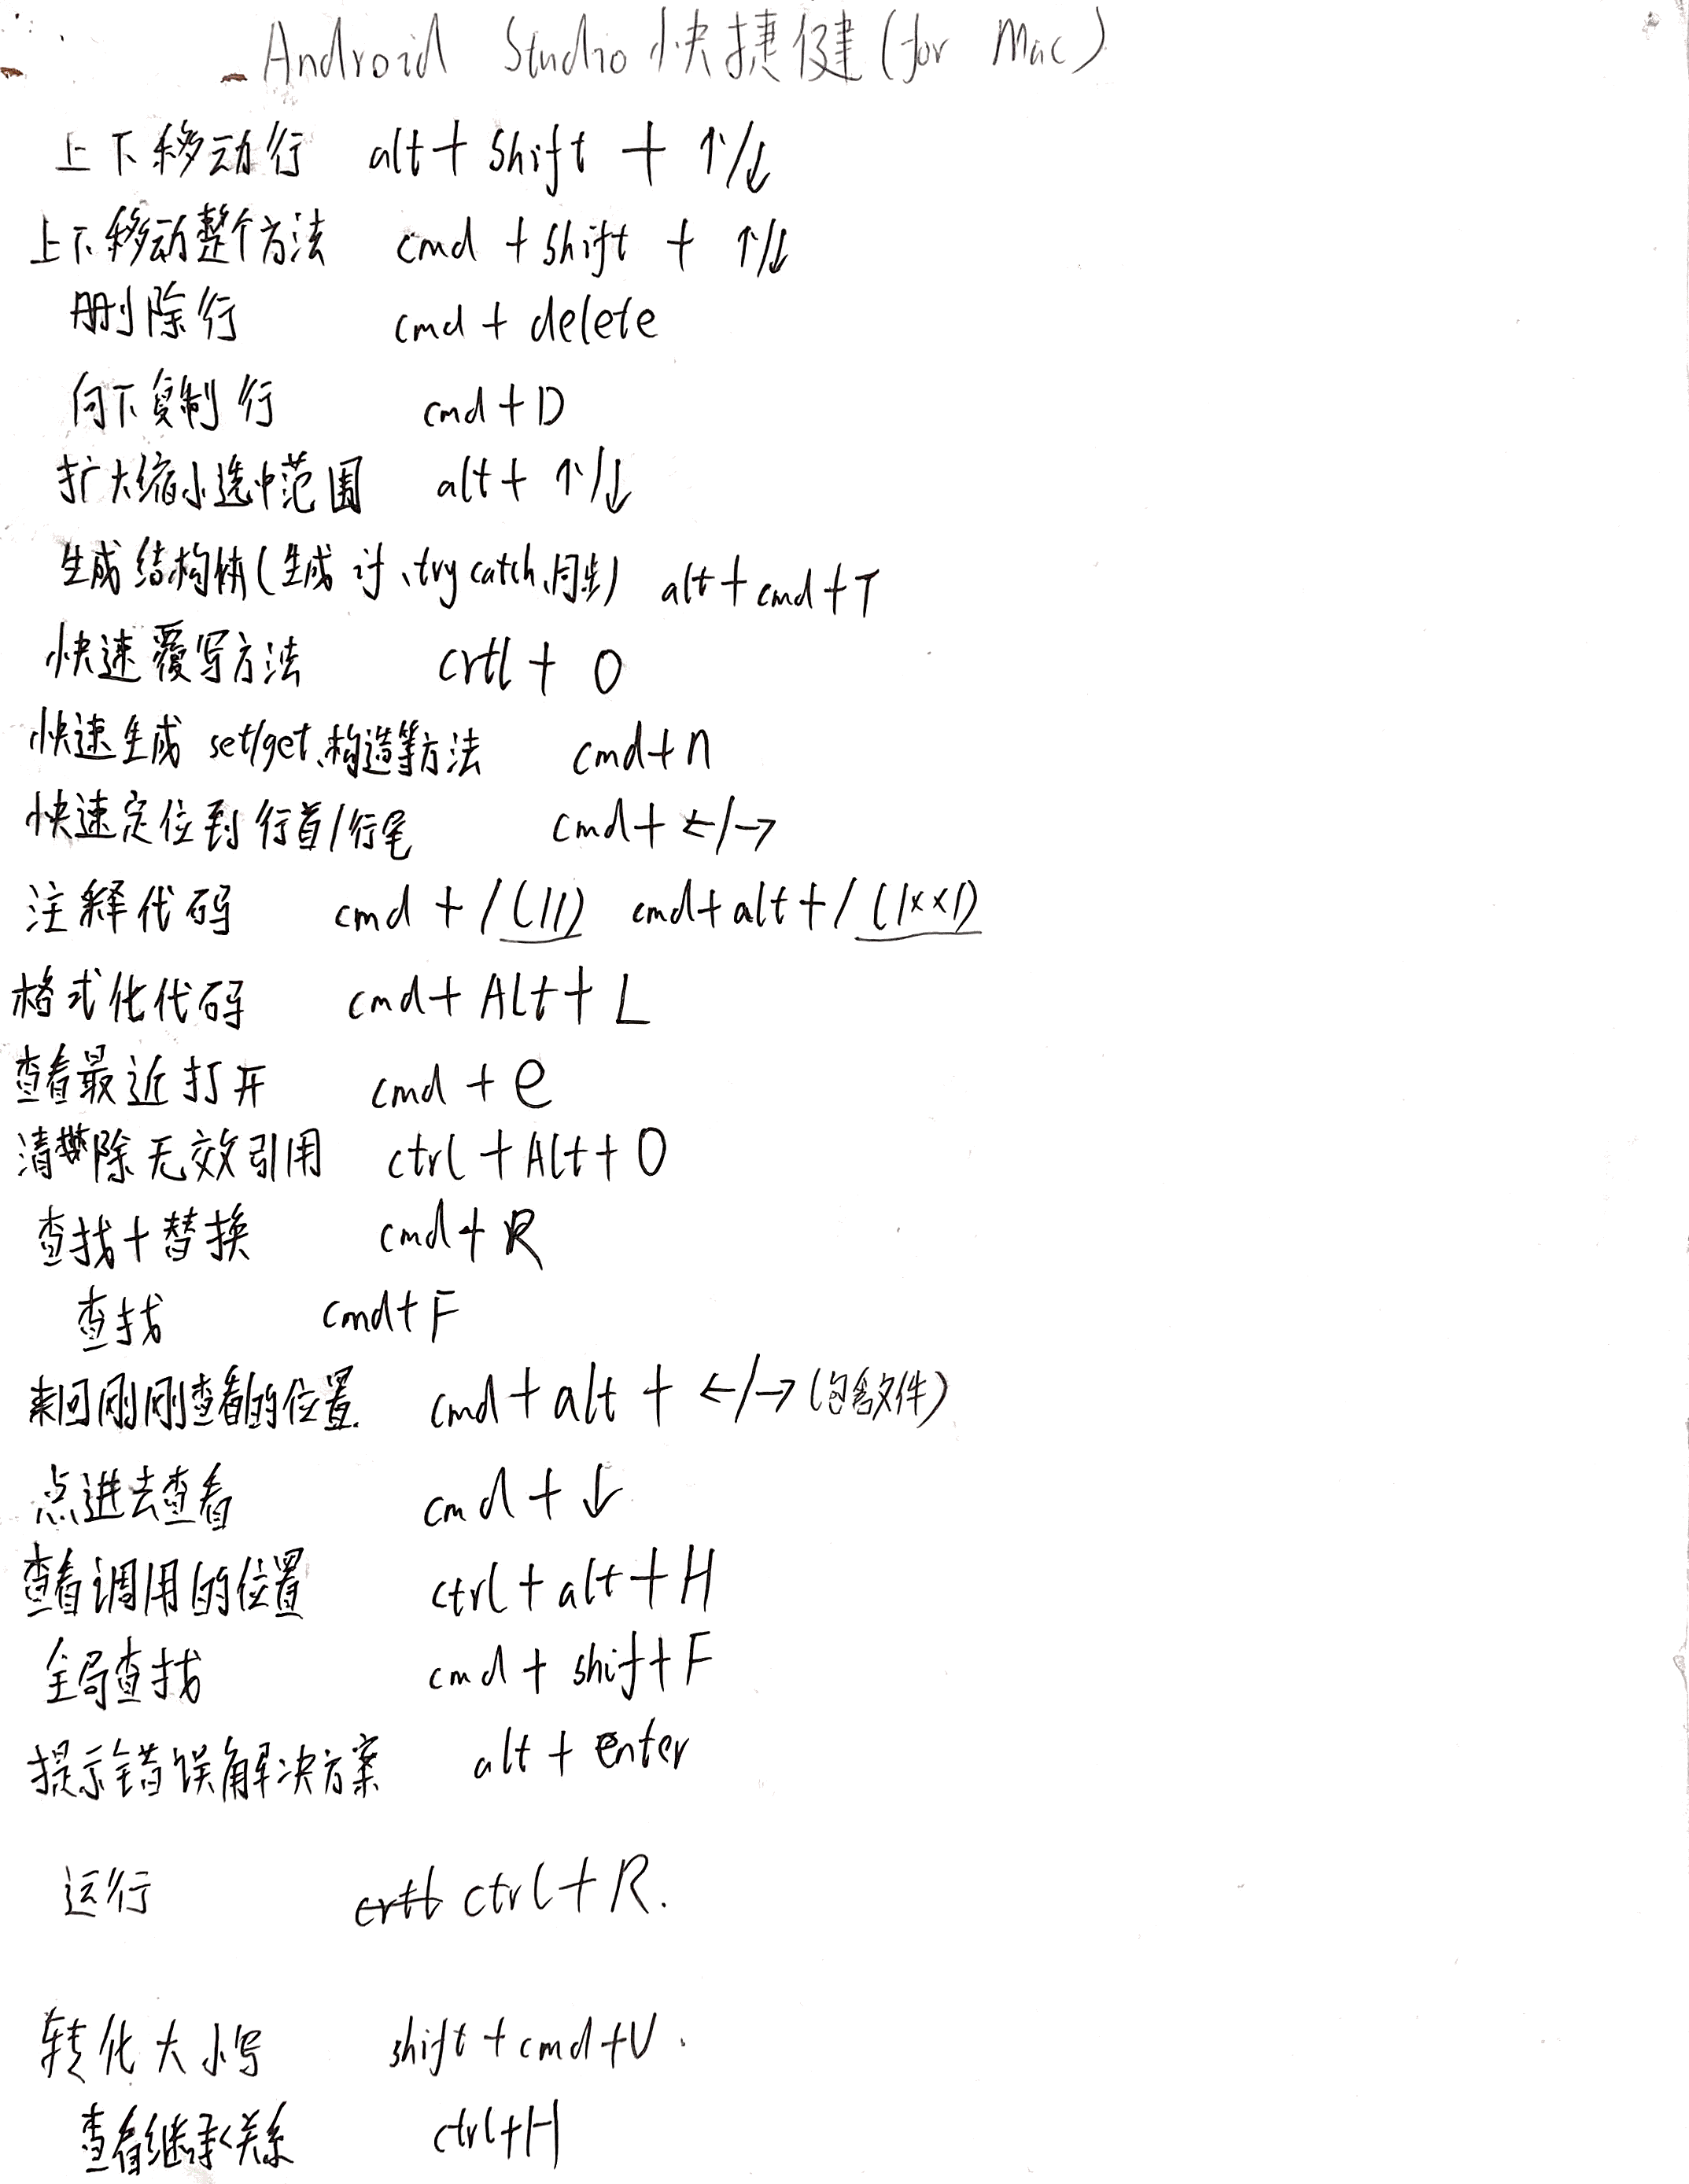 Android Studio 快捷健(for Mac)
上下移动行 alt + shift + ↑/↓
上下移动整个方法 cmd + shift + ↑/↓
删除行 cmd + delete
向下复制行 cmd + D
扩大缩小选中范围 alt + ↑/↓
生成结构体(生成 if、try catch、同步) alt + cmd + T
快速覆写方法 crtl + O
快速生成 set/get、构造等方法 cmd + n
快速定位到行首/行尾 cmd + ←/→
注释代码 cmd + / (//) cmd + alt + / (/××/)
格式化代码 cmd + Alt + L
查看最近打开 cmd + e
清除无效引用 ctrl + Alt + O
查找+替换 cmd + R
查找 cmd + F
来回刚刚查看的位置. cmd + alt + ←/→ (包含文件)
点进去查看 cmd + ↓
查看调用的位置 ctrl + alt + H
全局查找 cmd + shift + F
提示错误解决方案 alt + enter
运行 crtl ctrl + R.
转化大小写 shift + cmd + U.
查看继承关系 ctrl + H